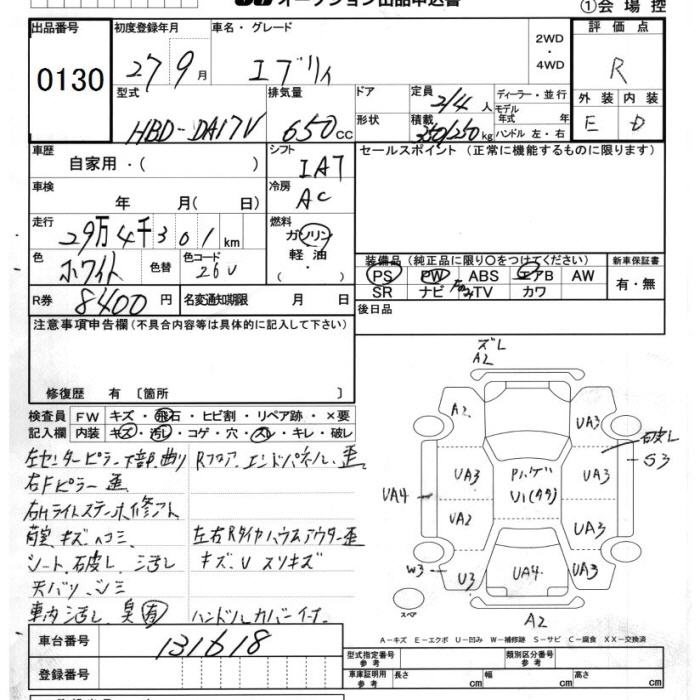 オークション出品申込書
①会場控
出品番号 初度登録年月 車名・グレード 評価点
0130 27 9月 エブリィ 2WD・4WD R
型式 排気量 ドア 定員 2/4人 ディーラー・並行 外装 内装
HBD-DA17V 650cc 形状 積載 350/250kg モデル年式 年 E D
ハンドル 左・右
車歴 シフト セールスポイント (正常に機能するものに限ります)
自家用・( ) IA7
車検 冷房
年 月( 日) AC
走行 燃料
29万4千301km ガソリン
色 ホワイト 色替 色コード 26U 軽油・
装備品 (純正品に限り○をつけてください) 新車保証書
PS PW ABS エアB AW 有・無
SR ナビ TV カワ
R券 8400円 名変通知期限 月 日
後日品
注意事項申告欄(不具合内容等は具体的に記入して下さい)
修復歴 有 〔箇所 〕
検査員 FW キズ・飛石・ヒビ割・リペア跡・×要
記入欄 内装 キズ・汚し・コゲ・穴・スレ・キレ・破レ
左センターピラー下部曲り Rフロア、エンドパネル歪
右Fピラー歪
右Hライトステー
荷室キズヘコミ 左右Rタイヤハウスアウター歪
シート、破レ、シミ汚レ キズ、U スリキズ
天バリシミ
車内汚レ、臭(有) ハンドルカバー
車台番号 131618
登録番号
ズレ
A2
A2
UA3
破レ
S3
UA3
UA3
UA4
UA2
UA3
W3
U3
UA4
UA3
スペア
A2
A-キズ E-エクボ U-凹み W-補修跡 S-サビ C-腐食 XX-交換済
型式指定番号 参考 類別区分番号 参考
車庫証明用 参考 長さ cm 幅 cm 高さ cm